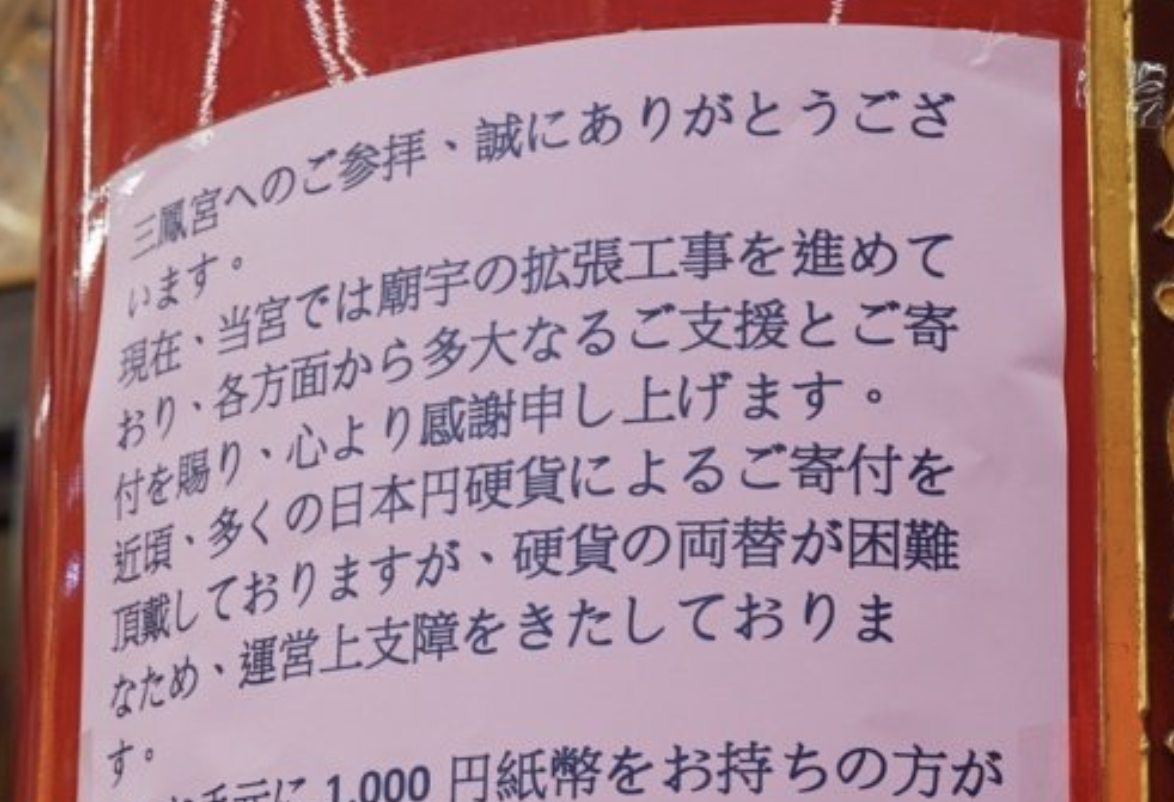 三鳳宮へのご参拝、誠にありがとうござ
います。
現在、当宮では廟宇の拡張工事を進めて
おり、各方面から多大なるご支援とご寄
付を賜り、心より感謝申し上げます。
近頃、多くの日本円硬貨によるご寄付を
頂戴しておりますが、硬貨の両替が困難
なため、運営上支障をきたしておりま
す。
お手元に 1,000 円紙幣をお持ちの方が